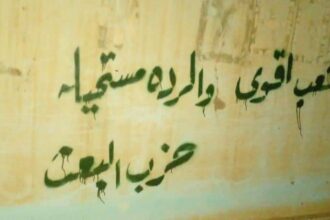 شعب اقوى والرده مستحيله
حزب البعث